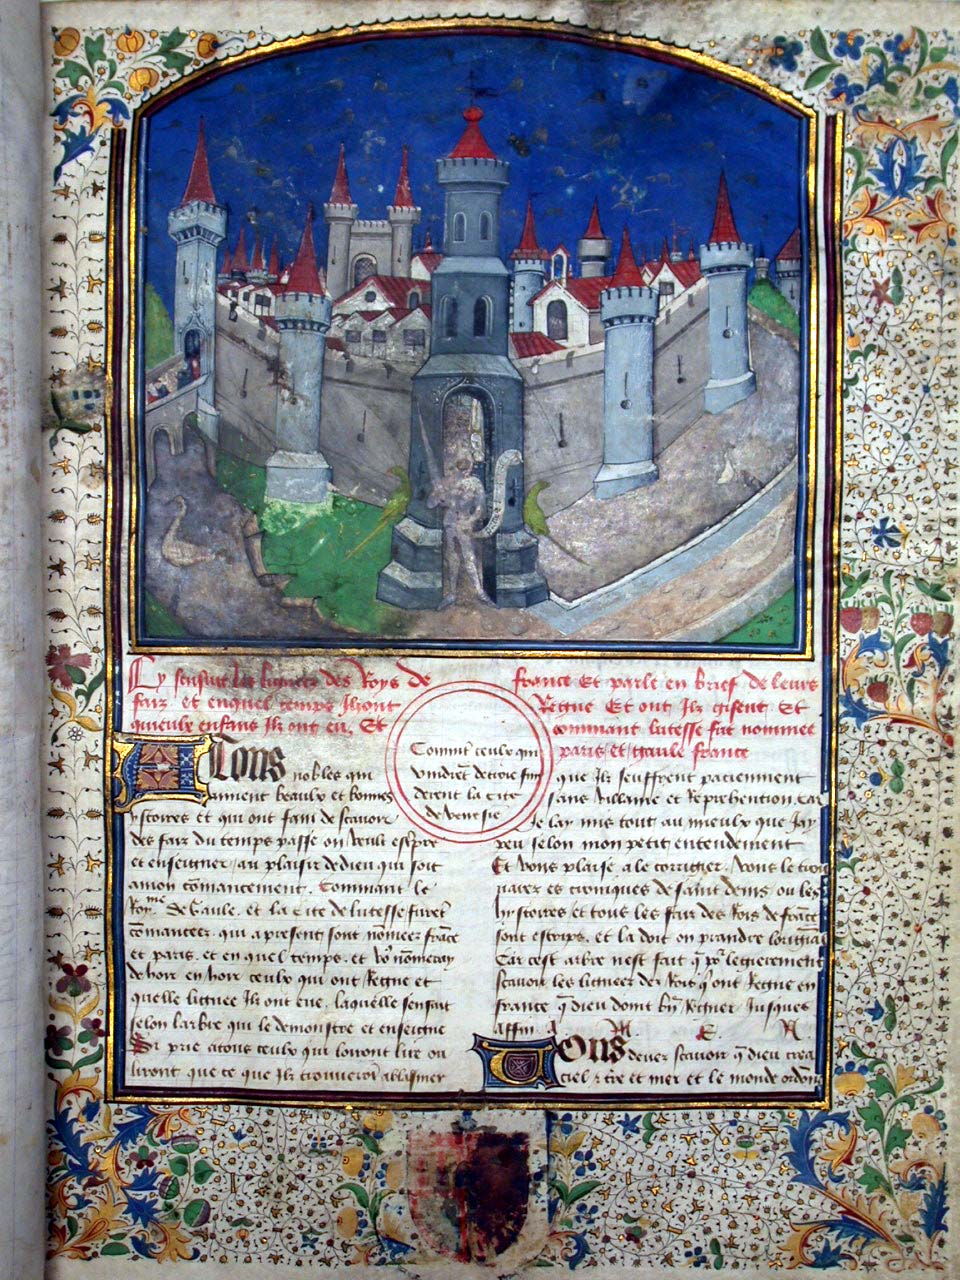 Cy sensuit les lignees des Roys de france Et parle en brief de leurs
fais et en quel temps Ilz ont Regne Et ont Ilz gisent Et
quieulx enfans Ilz ont eu, Et commant lutesse fut nommee
paris et gaule france
Comment ceulx qui
vindrent de troie fon
derent la cite
de venesie
A Tous nobles qui
aiment beaulx et bonnes
ystoires et qui ont fain de scauoir
des fais du temps passe on veult
et enseigner / au plaisir de dieu qui soit
a mon commancement. Commant le
Roy.me De Gaule. et la Cite de lutesse furet
comancees. qui a present sont nomees frāce
et paris. et en quel temps. et vo9 nomeray
de hoir en hoir ceulx qui ont Regne et
quelle lignee Ilz ont eue, laquelle sensuit
selon larbre qui le demonstre et enseigne
Si prie a tous ceulx qui lorront lire ou
liront que ce que Ilz trouueront a blasmer
que Ilz seuffrent paciemment
sans villanie et Reprehention, Car
Je lay mis tout au mieulx que Jay
peu selon mon petit entendement
Et vous plaise a le corrigier. vous le
es croniques de saint denis ou les
hystoires et tous les fais des Rois de frāce
sont escrips. et la doit on prandre
Car cest arbre nest fait q̄ pr legierement
scauoir les lignees des Rois q̄ ont Regne en
france q̄ dieu doint bn̄ Regner Jusques
affin. A M. E. N
Vous deuez scauoir q̄ dieu crea
ciel. tr̄e et mer et le monde